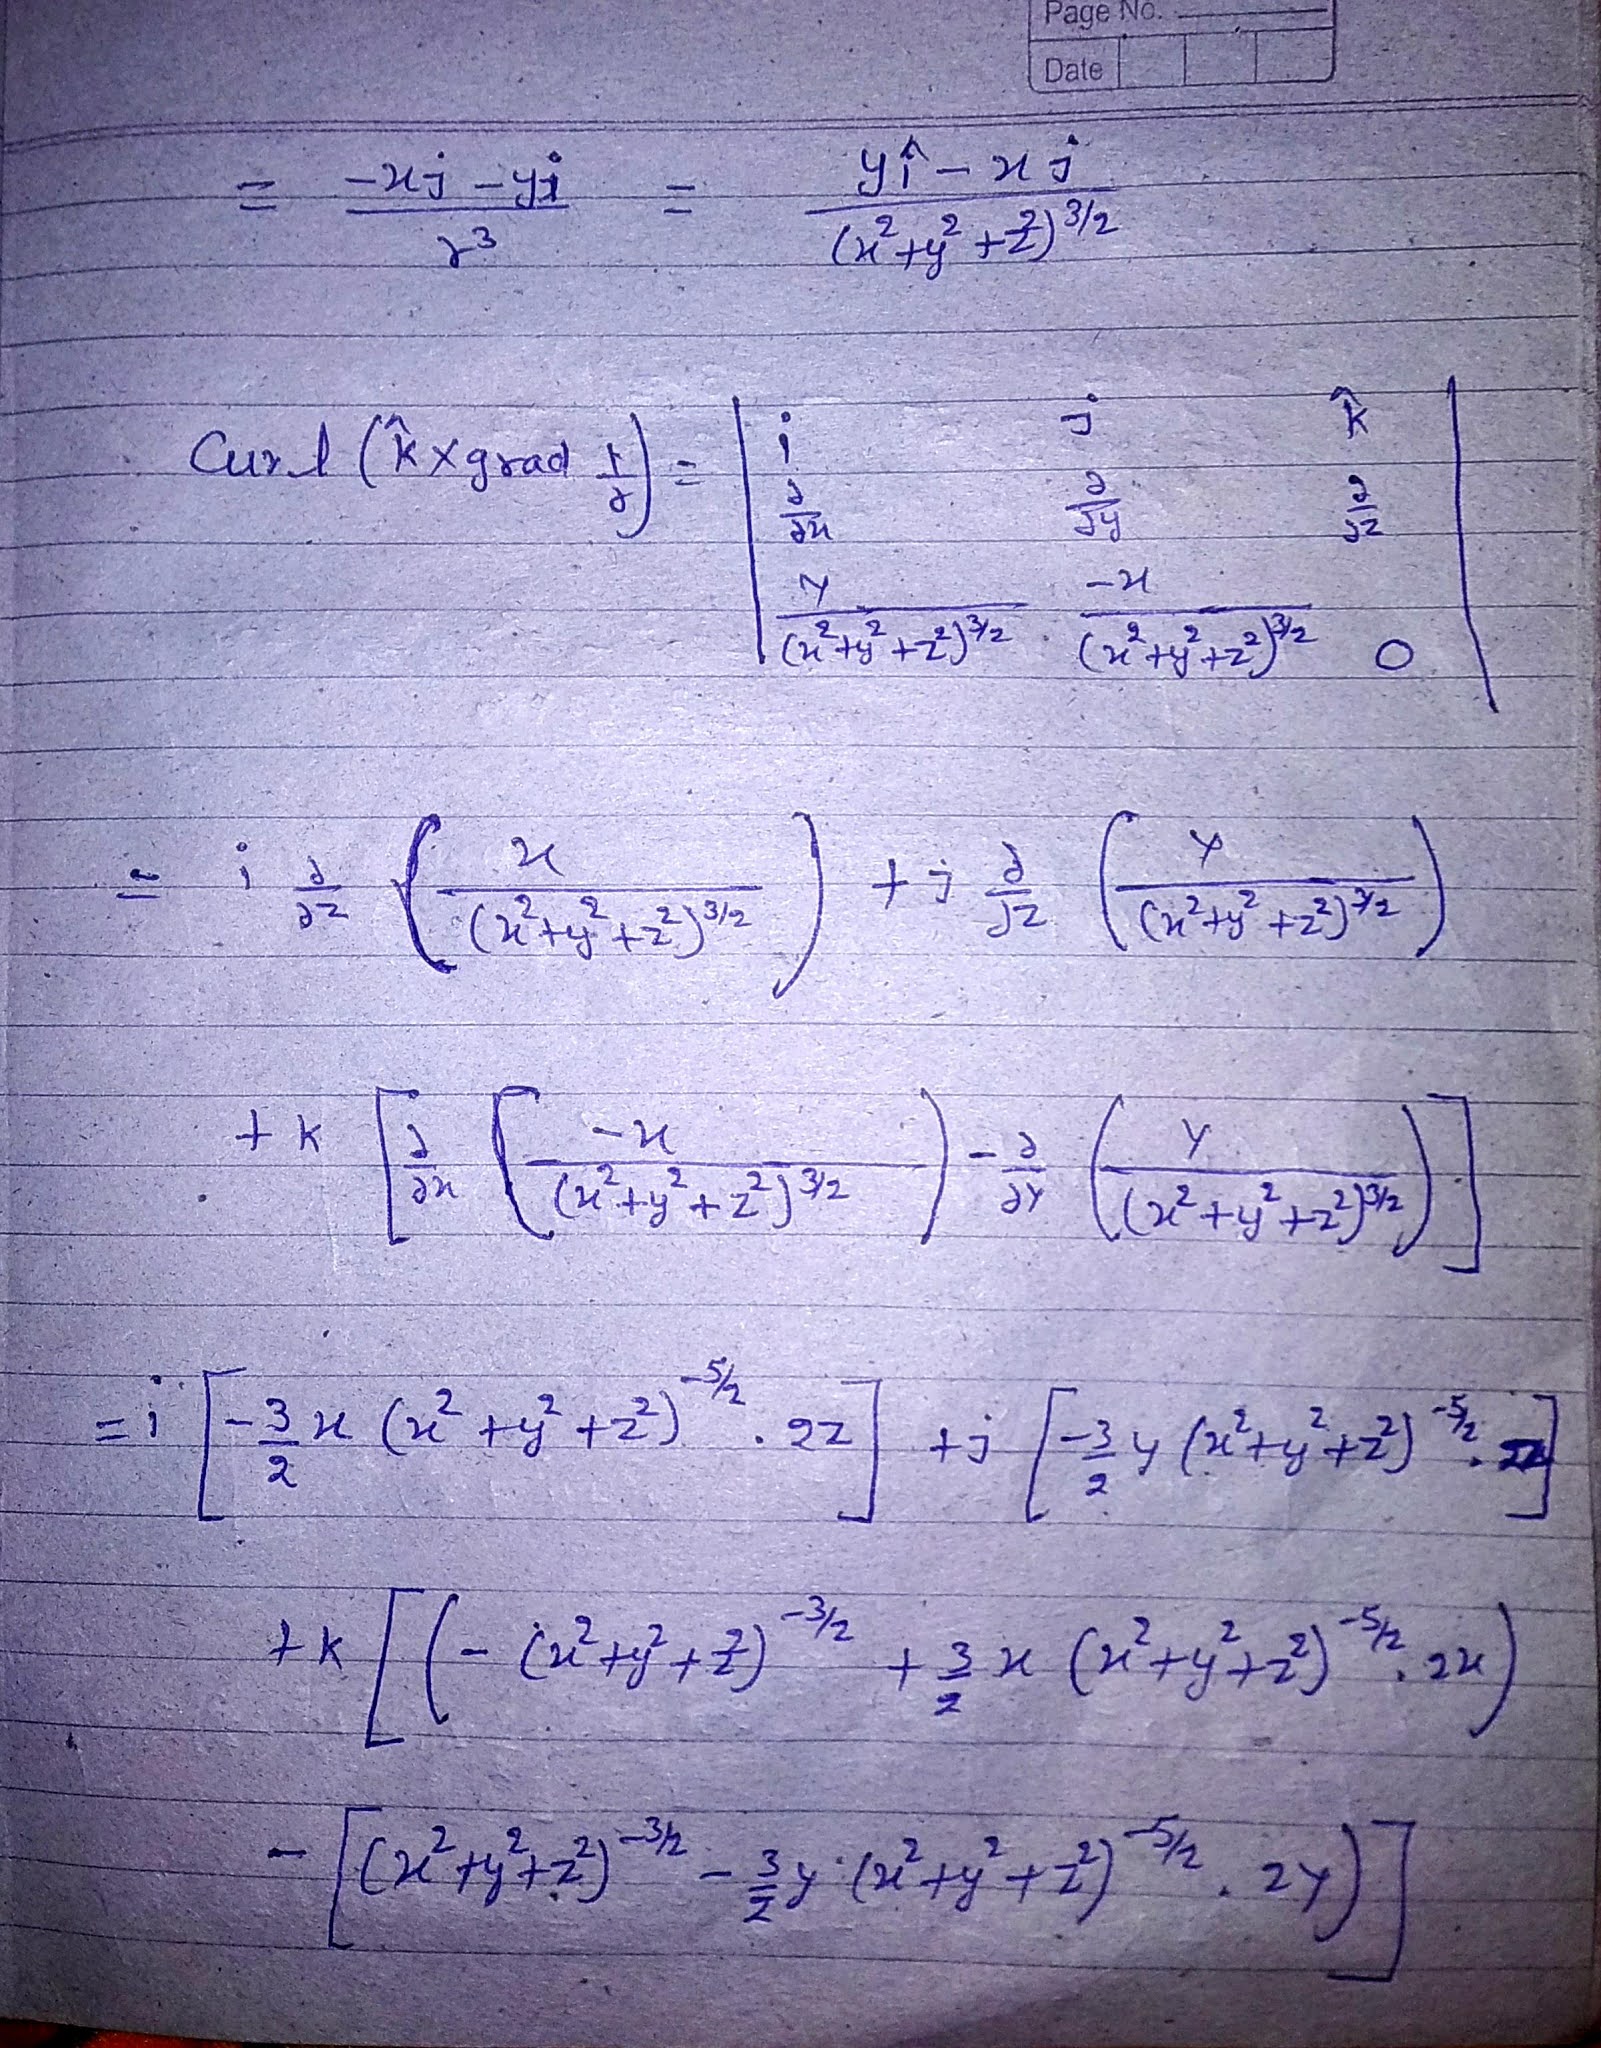 Page No.
Date
= (-xj - yi)/r³ = (yî - xj)/(x²+y²+z²)^3/2
Curl (k̂ × grad 1/r) = | i j k̂ |
| ∂/∂x ∂/∂y ∂/∂z |
| y/(x²+y²+z²)^3/2 -x/(x²+y²+z²)^3/2 0 |
= i ∂/∂z (x/(x²+y²+z²)^3/2) + j ∂/∂z (y/(x²+y²+z²)^3/2)
+ k [∂/∂x (-x/(x²+y²+z²)^3/2) - ∂/∂y (y/(x²+y²+z²)^3/2)]
= i [-3/2 x (x²+y²+z²)^-5/2 . 2z] + j [-3/2 y (x²+y²+z²)^-5/2 . 2z]
+ k [(- (x²+y²+z²)^-3/2 + 3/2 x (x²+y²+z²)^-5/2 . 2x)
- [(x²+y²+z²)^-3/2 - 3/2 y . (x²+y²+z²)^-5/2 . 2y)]